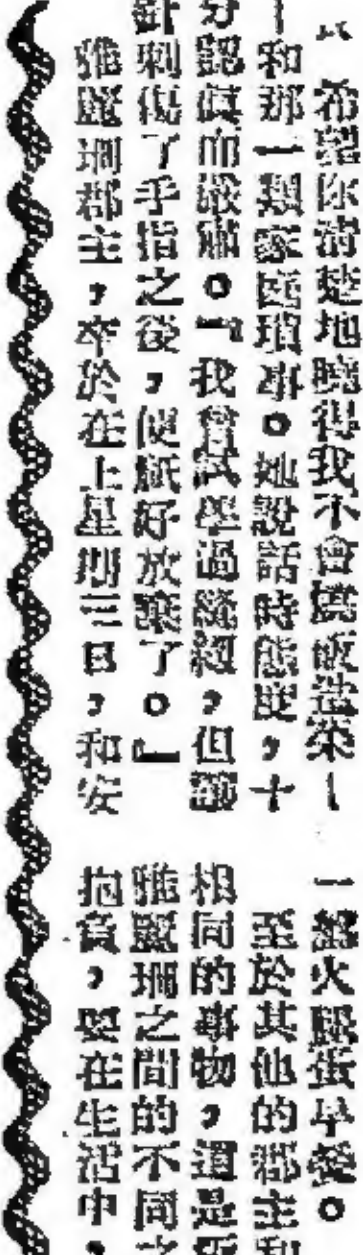 希望你清楚地曉得我不會燒飯造菜—
—和那一類家庭瑣事。她說話時態度,十
分認眞而嚴肅。『我嘗試學過縫紉,但
針刺傷了手指之後,便祇好放棄了。』
雅麗珊郡主,卒於在上星期三日,和安
一盤火腿蛋早餐。
至於其他的郡主和
相同的事物,還是
雅麗珊之間的不同
抱負,要在生活中,